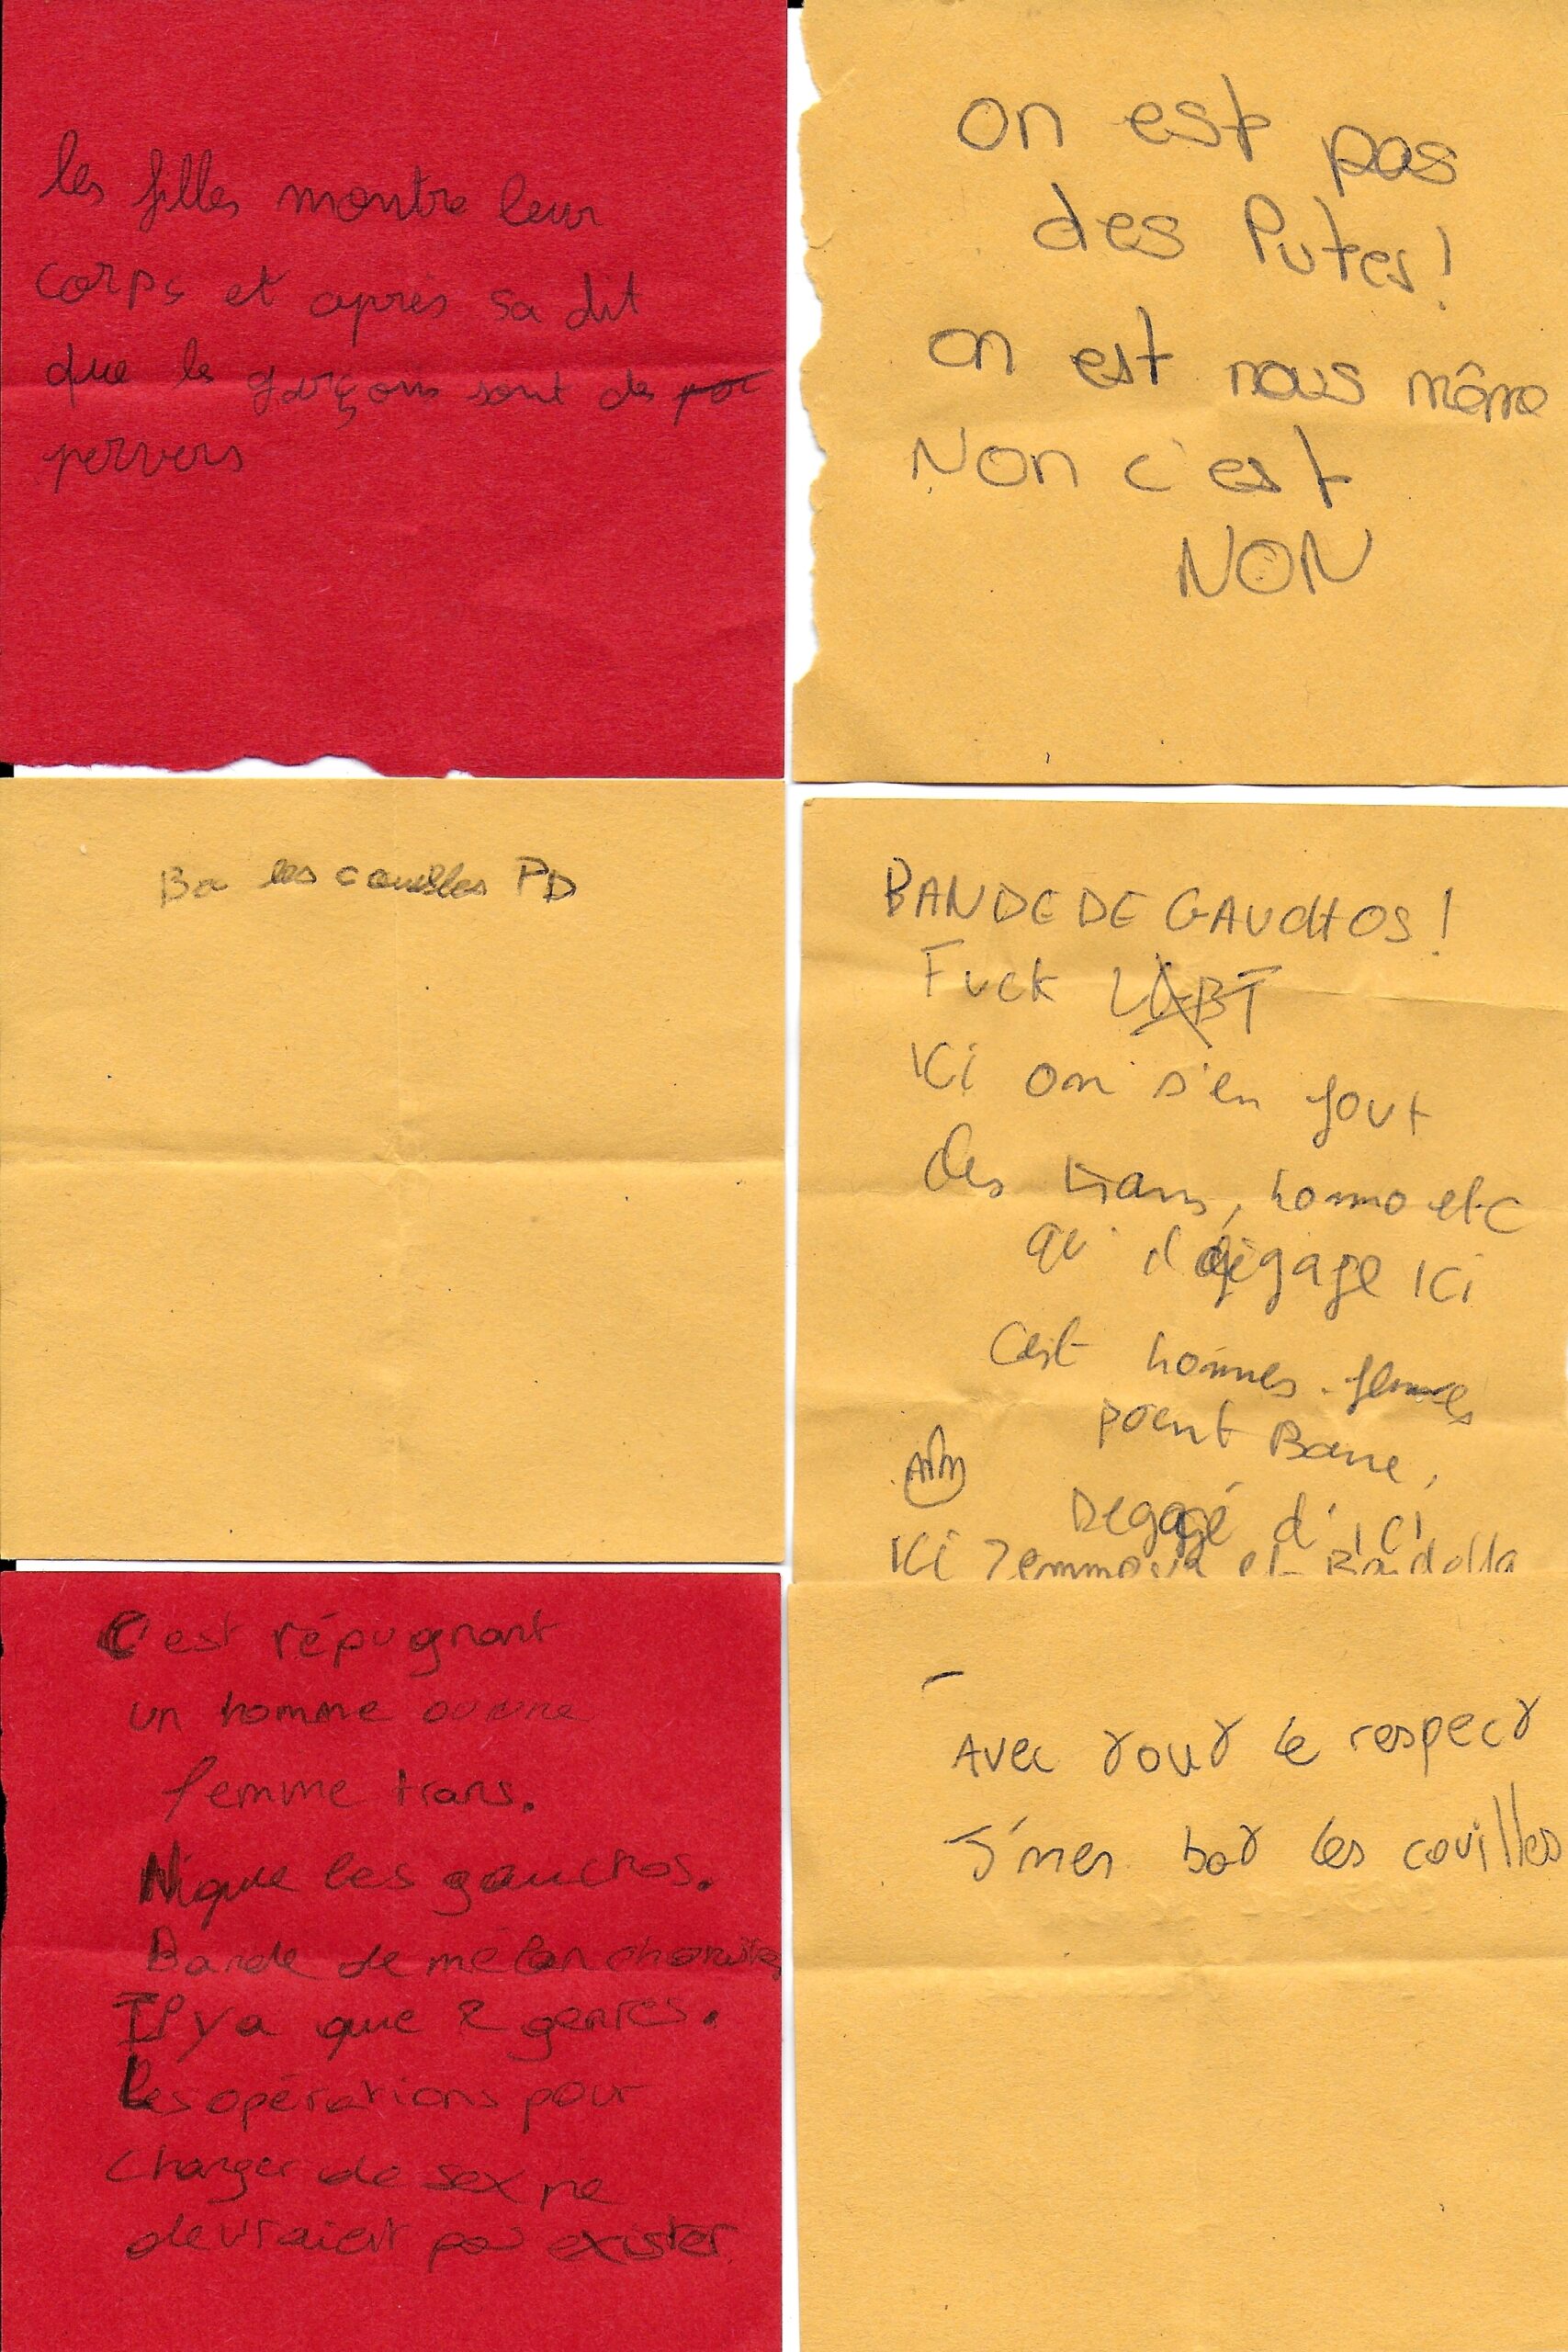 les filles montre leur
corps et après sa dit
que les garçons sont des
pervers
on est pas
des Putes!
on est nous même
Non c'est
NON
Ba les couilles PD
BANDE DE GAUCHOS!
Fuck LGBT
ici on s'en fout
des trans, homo etc
qu'il dégage ici
C'est hommes-femmes
point Barre,
Dégagé d'ici
ici Zemmour et Bardella
C'est répugnant
un homme ou une
femme trans.
Nique les gauchos.
Bande de mélenchonistes
Il y a que 2 genres.
Les opérations pour
changer de sex ne
devraient pas exister
Avec tout le respect
J'men bat les couilles